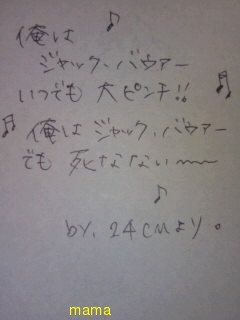 俺は
ジャック・バウアー
いつでも 大ピンチ!!
俺は ジャック・バウアー
でも 死なない〜〜
by. 24CMより。
mama